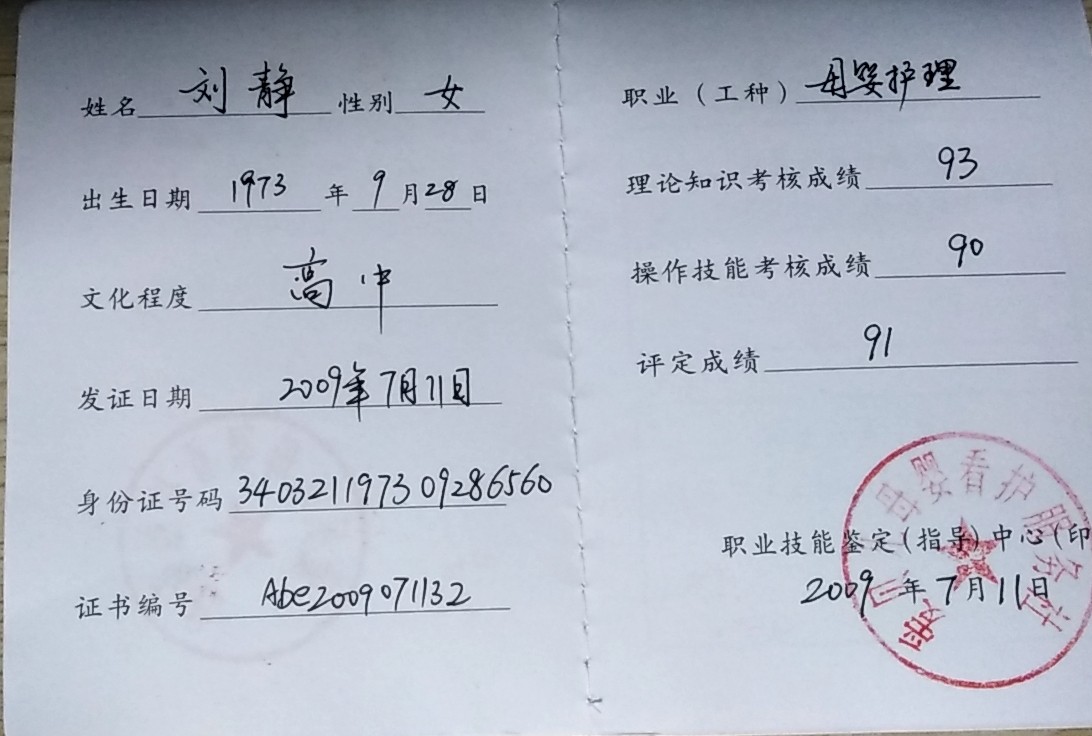 姓名 刘静 性别 女
出生日期 1973 年 9 月 28 日
文化程度 高中
发证日期 2009年7月11日
身份证号码 340321197309286560
证书编号 Abe2009071132
职业（工种） 母婴护理
理论知识考核成绩 93
操作技能考核成绩 90
评定成绩 91
职业技能鉴定(指导)中心(印
2009年7月11日
母婴看护服务